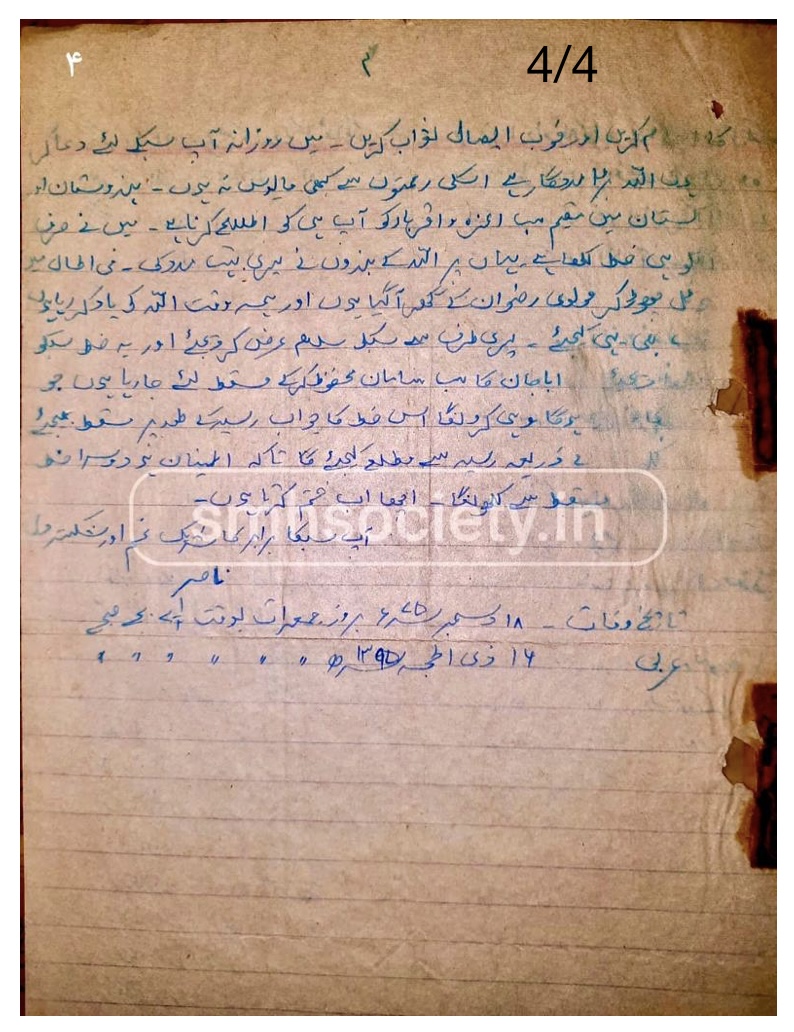 ۴ ۴ 4/4
کریں اور خوب ایصال ثواب کریں ۔ میں روزانہ آپ سبکے لئے دعا کر
ہوں اللہ مددگار ہے اسکی رحمتوں سے کبھی مایوس نہ ہوں ۔ ہندوستان اور
میں مقیم سب اعزہ و اقرباء کو آپ ہی کو اطلاع کرنا ہے ۔ میں نے صرف
ہی خط لکھا ہے یہاں پر اللہ کے بندوں نے میری بہت مدد کی ۔ فی الحال میں
چھوڑ کر مولوی رضوان کے گھر آگیا ہوں اور ہمہ وقت اللہ کو یاد کر رہا ہوں
بھی یہی کیجئے ۔ میری طرف سے سبکو سلام عرض کر دیجئے اور یہ خط سبکو
اباجان کا سب سامان محفوظ کرکے مسقط لئے جا رہا ہوں جو
ہوگا وہی کرونگا اس خط کا جواب رسید کے طور پر مسقط بھیجئے
کے ذریعہ رسید سے مطلع کیجئے گا تاکہ اطمینان ہو دوسرا خط
مسقط سے لکھونگا ۔ اچھا اب ختم کرتا ہوں ۔
آپ سبکا برابر کا شریک غم اور شکستہ دل
ناصر
تاریخ وفات ۔ ۱۸ دسمبر ۷۵ء بروز جمعرات بوقت بجے صبح
عربی ۱۶ ذی الحجہ ۱۳۹۵ھ " " " " " "
shihsociety.in